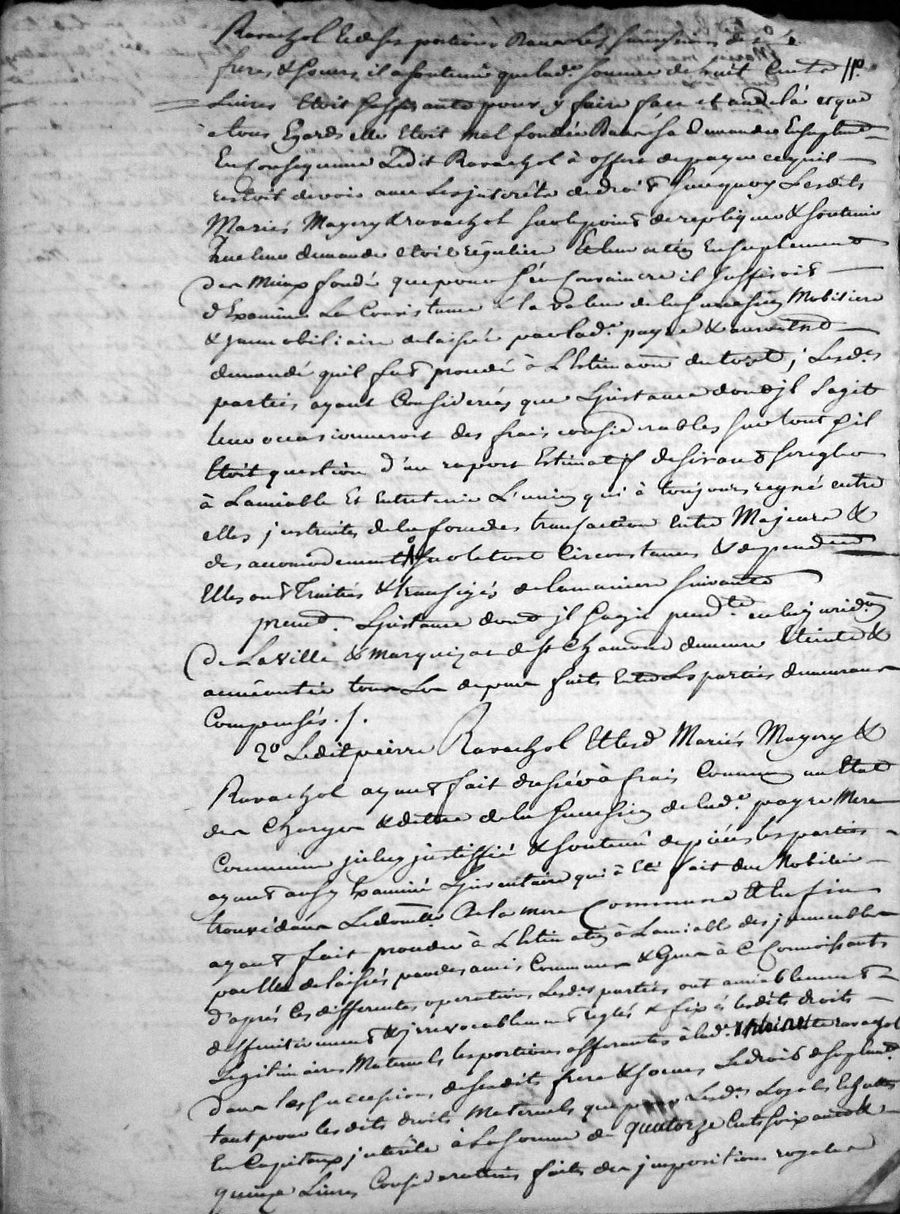 Ravachol et de ses portions dans les successions de ses
freres & soeurs, il a soutenu que lad.e somme de huit cents
Livres etoit suffisante pour y faire face et au dela et que
a tous Egards elle etoit mal fondée dans sa demande En suplemt
En Consequence Ledit Ravachol à offert de payer ce qu'il
restoit devoir avec Les interêts de droit sur quoy Lesdits
Mariés Mayery & ravachol sur le point de repliquer & soutenir
que leur demande etoit régulière Et leur action En suplement
des Mieux fondé que pour s'en Convaincre il suffisoit
d'Examiner La Consistance & la valeur de la succession Mobiliere
& immobiliaire delaissée par lad.e payre &
demandé qu'il fut procedé à L'Estimaon du tout ; Lesd.es
parties ayant Considerées que L'instance dont jl s'agit
leur occasionneroit des frais considerables sur tout s'il
Etoit question d'un raport Estimatif desirant se regler
à Lamiable Et Entretenir L'union qui à toujours regné entre
elles instruites de la force des transaction Entre Majeurs &
des accomodements sur le tout Circonstances & dependances
Elles ont Traités & transigés de la maniere suivante
prem.t L'instance dont jl s'agit pend.te en la juridon
de La ville & marquizat de st Chamond demeure Eteinte &
aneantie tous Les depens faits Entre Les parties demeurans
Compensés ./.
2o Ledit pierre Ravachol Et lesd Mariés Mayery &
Ravachol ayant fait dresser à frais Commun un Etat
des Charges & dettes de la succession de lad.e payre Mere
Commune icelui justiffié & soutenu de pièces les parties
ayant aussy Examiné L'inventaire qui à Eté fait du Mobilier
trouvé dans Le domlle De la mere Commune Et Enfin
ayant fait proceder à L'Estimaon à Lamiable des immeubles
par Elle delaissés par des amis Communs & Gens à Ce Connoissants
d'après Ces differentes operations Lesd.es parties ont amiablement
deffinitivement & jrrevocablement reglés & fixé lesdits droits
Legitimaires Maternels les portions afferantes à lad.e ravachol
dans les successions de sesdits frere & soeurs Le droit de suplemt
tant pour lesdits droits Maternels que pour Lesd.es Loyales Echuttes
En Capitaux interêts à La somme de quatorze Cents soixante
quinze Livres Consideration faite des jmpositions royales